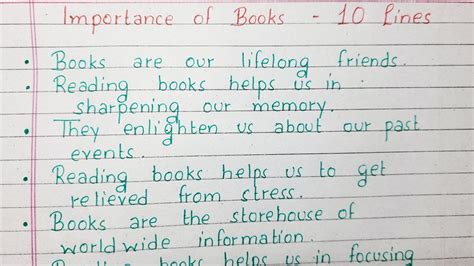 Importance of Books - 10 lines
• Books are our lifelong friends.
• Reading books helps us in
sharpening our memory.
• They enlighten us about our past
events.
• Reading books helps us to get
relieved from stress.
• Books are the storehouse of
worldwide information.
books helps us in focusing